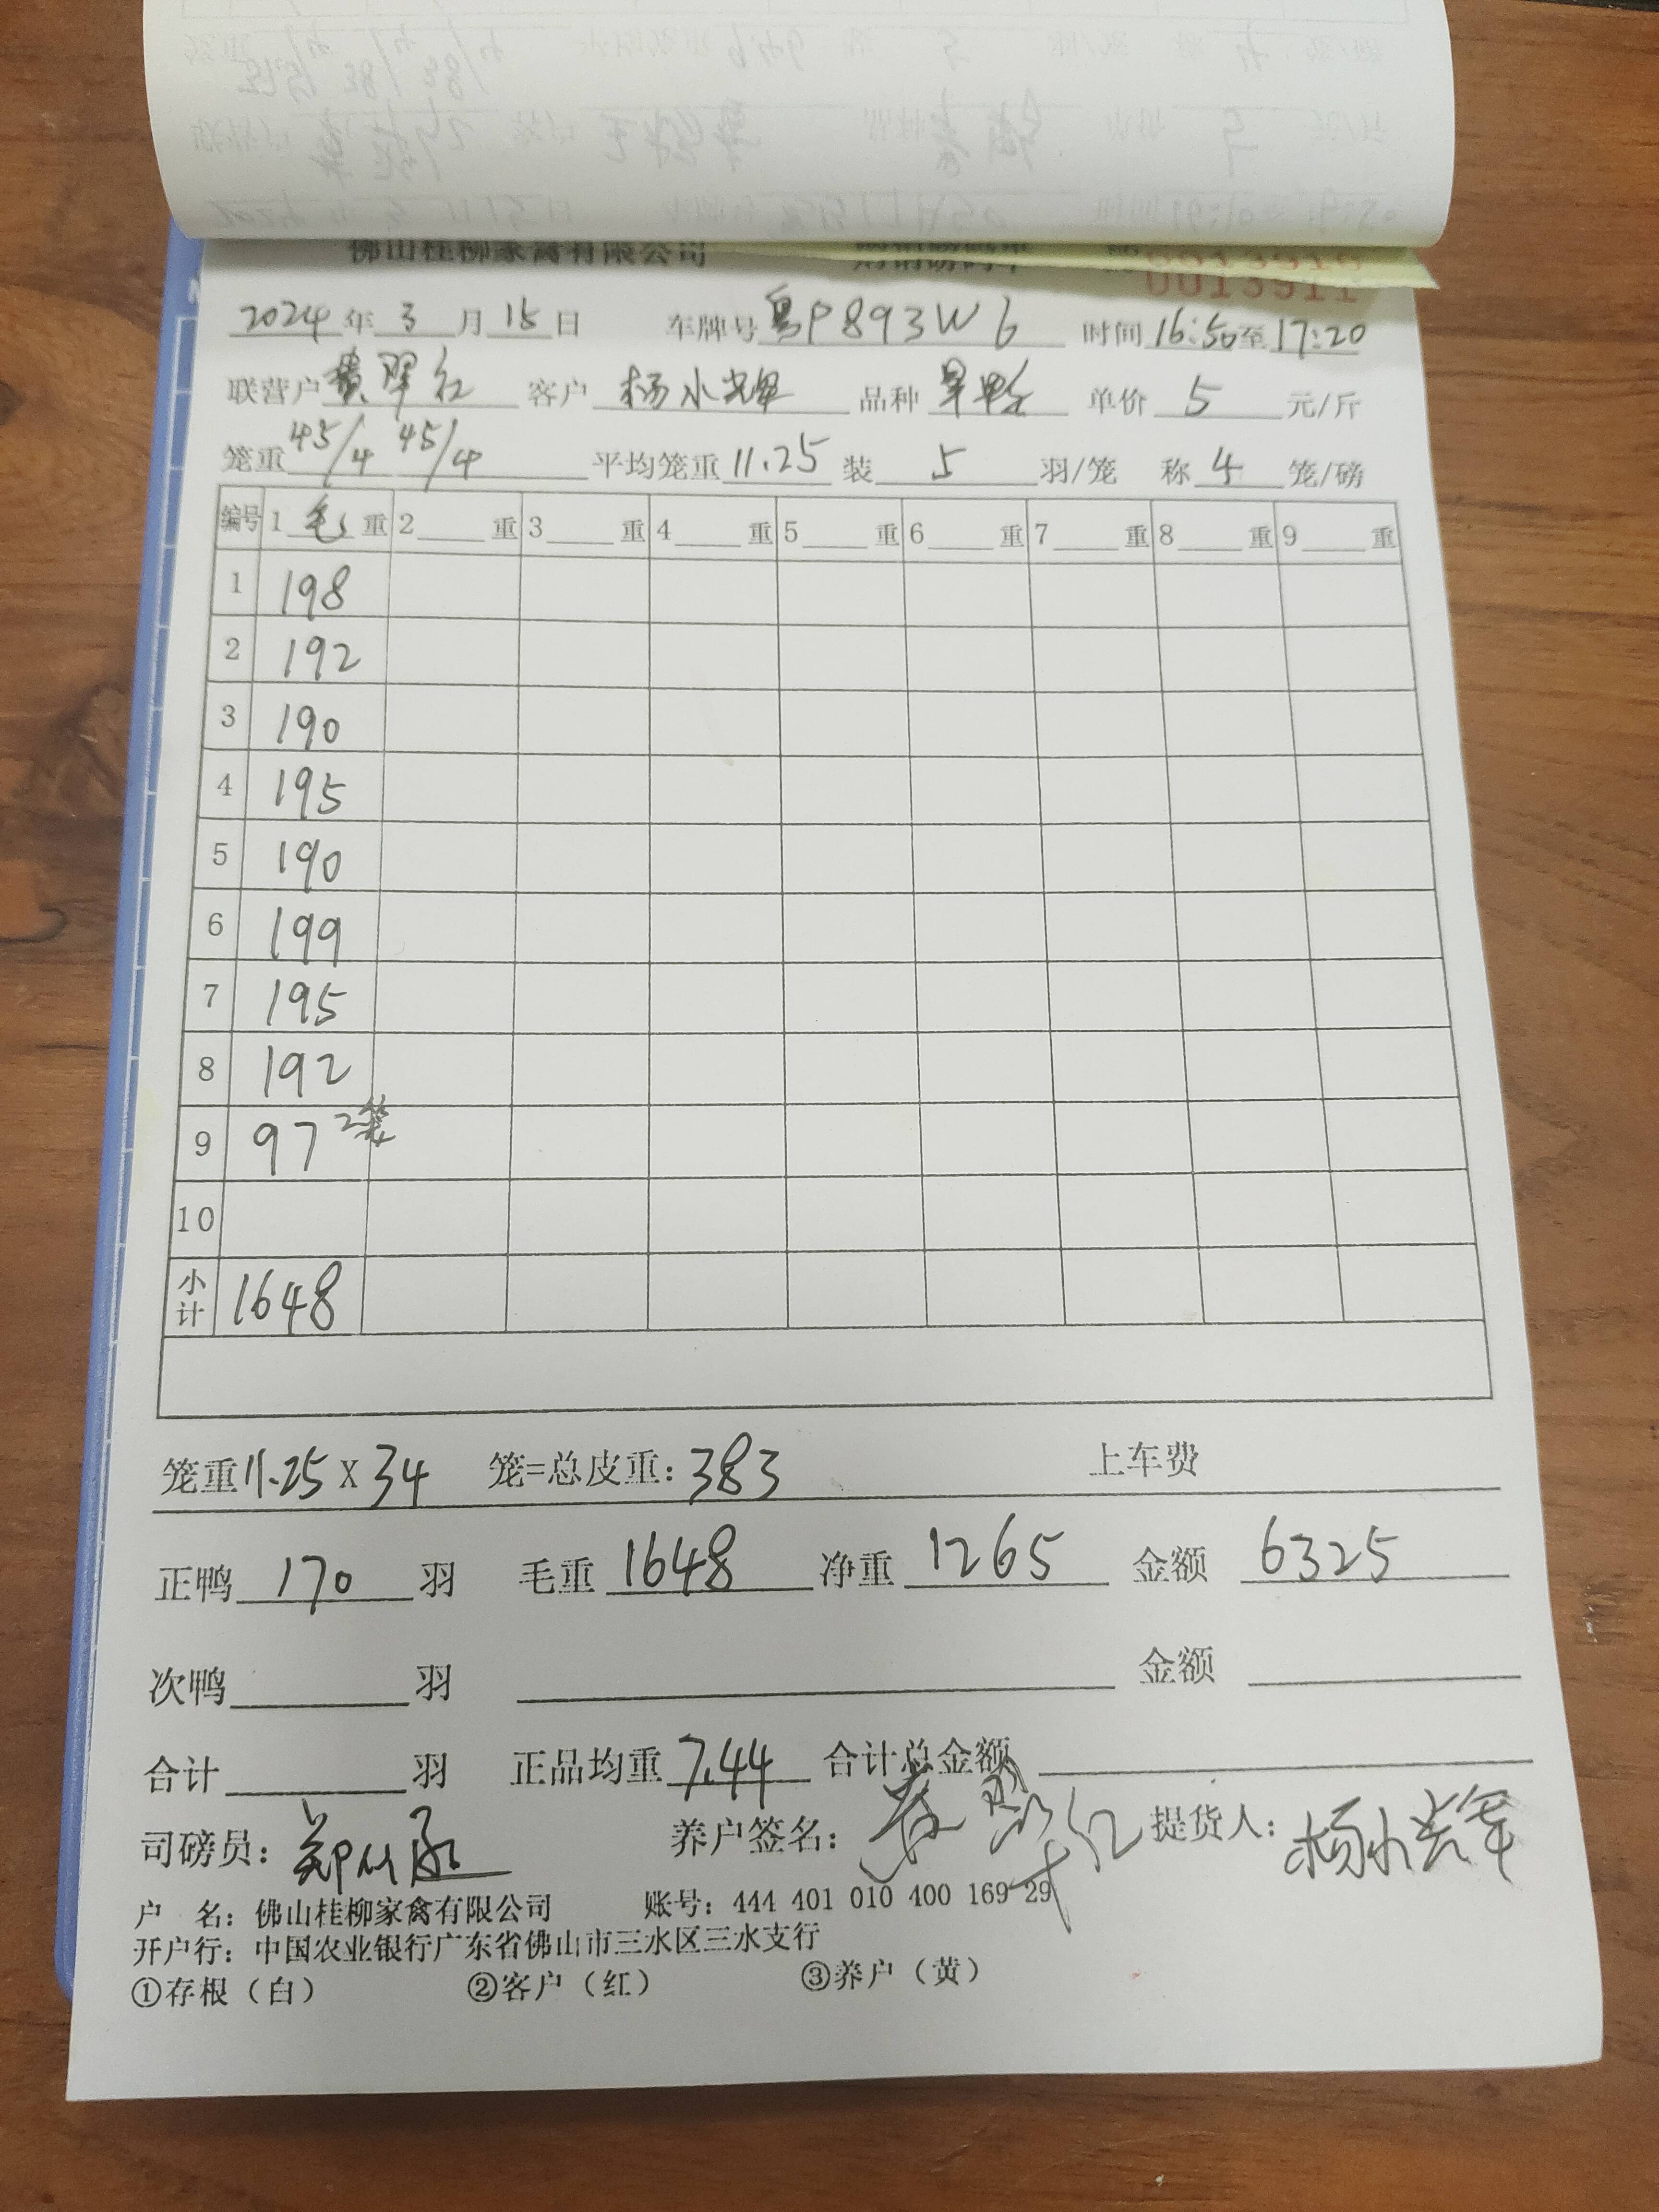 佛山桂柳家禽有限公司
0013911
2024年3月15日 车牌号 粤P893W6 时间 16:50至17:20
联营户 黄翠红 客户 杨水辉 品种 旱鸭 单价 5 元/斤
笼重 45/4 45/4 平均笼重 11.25 装 5 羽/笼 称 4 笼/磅
编号 1 毛 重 2 重 3 重 4 重 5 重 6 重 7 重 8 重 9 重
1 198
2 192
3 190
4 195
5 190
6 199
7 195
8 192
9 97 2笼
10
小计 1648
笼重 11.25 X 34 笼=总皮重: 383 上车费
正鸭 170 羽 毛重 1648 净重 1265 金额 6325
次鸭 羽 金额
合计 羽 正品均重 7.44 合计总金额
司磅员: 养户签名: 黄翠红 提货人: 杨水辉
户 名: 佛山桂柳家禽有限公司 账号: 444 401 010 400 169 29
开户行: 中国农业银行广东省佛山市三水区三水支行
①存根(白) ②客户(红) ③养户(黄)